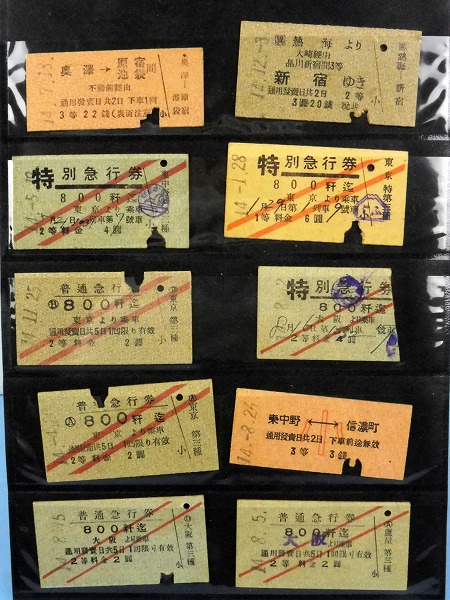 奥澤→原宿 池袋間
不動前經由
通用發賣日共2日 下車1回
3等22錢(裏面注意)
小
熱海より
大崎經由
品川新宿間3等
新宿ゆき
通用發賣日共2日 2等
3圓20錢
14.12.-3
特別急行券
800粁迄
東京より乘車
2等料金 4圓
小
特別急行券
800粁迄
東京より乘車
1等料金 6圓
14.-1.28
東京
普通急行券
800粁迄
東京より乘車
通用發賣日共5日1回限り有效
2等料金 2圓
14.11.25
東京第三種
小
特別急行券
800粁迄
大阪より乘車
2等料金 4圓
小
普通急行券
800粁迄
東京より乘車
通用發賣日共5日1回限り有效
2等料金 2圓
東京第三種
小
東中野←→信濃町
通用發賣日共2日 下車前途無效
3等 3錢
小人
14.-8.26
普通急行券
800粁迄
大阪より乘車
通用發賣日共5日1回限り有效
2等料金2圓
大阪第三種
小
普通急行券
800粁迄
大阪より乘車
通用發賣日共5日1回限り有效
2等料金2圓
14.-8.-5.
蘆屋第三種
小